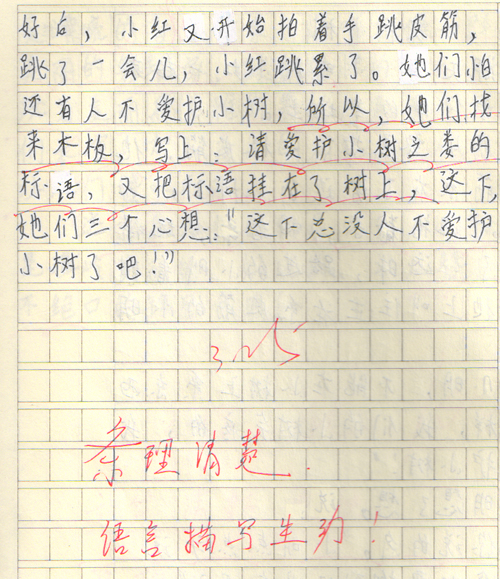 好后，小红又开始拍着手跳皮筋，
跳了一会儿，小红跳累了。她们怕
还有人不爱护小树，所以，她们找
来木板，写上：请爱护小树之类的
标语，又把标语挂在了树上，这下，
她们三个心想：“这下总没人不爱护
小树了吧！”
条理清楚.
语言描写生动！